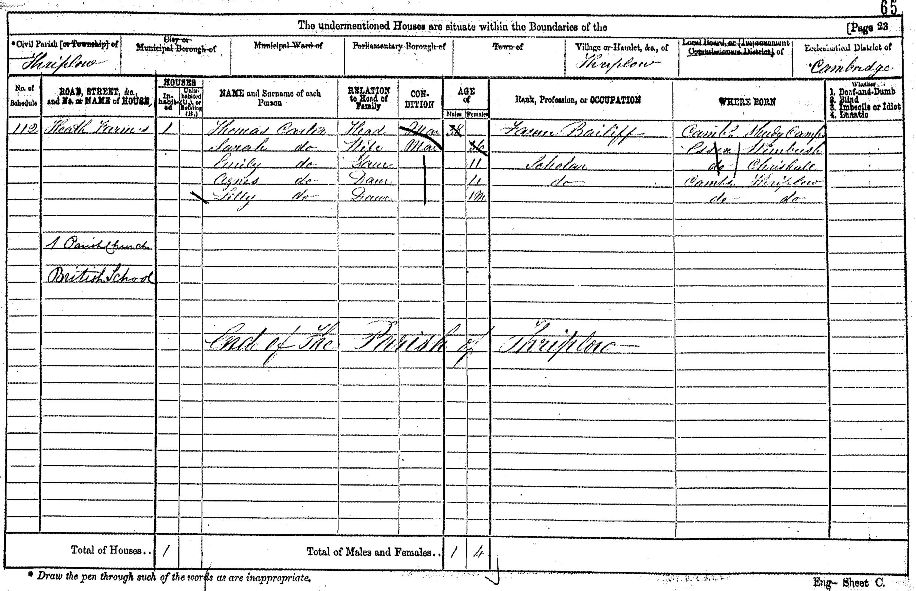 65
The undermentioned Houses are situate within the Boundaries of the [Page 23
*Civil Parish [or Township] of City or Municipal Borough of Municipal Ward of Parliamentary Borough of Town of Village or Hamlet, &c., of Local Board, or [Improvement Commissioners District] of Ecclesiastical District of
Thriplow Thriplow Cambridge
No. of Schedule ROAD, STREET, &c., and No. or NAME of HOUSE HOUSES In-habited Unin-habited (U.), or Building (B.) NAME and Surname of each Person RELATION to Head of Family CON-DITION AGE of Males Females Rank, Profession, or OCCUPATION WHERE BORN Whether 1. Deaf-and-Dumb 2. Blind 3. Imbecile or Idiot 4. Lunatic
112 Heath Farm 1 Thomas Head Mar 38 Farm Bailiff Camb Shudy Camps
Sarah do Wife Mar 36 Essex Wimbush
Emily do Daur 11 Scholar do Chrishall
Agnes do Daur 4 do Cambs Thriplow
Lilly do Daur do do
1 Parish Church
British School
End of The Parish of Thriplow
Total of Houses.. 1 Total of Males and Females.. 1 4
* Draw the pen through such of the words as are inappropriate.
Eng— Sheet C.